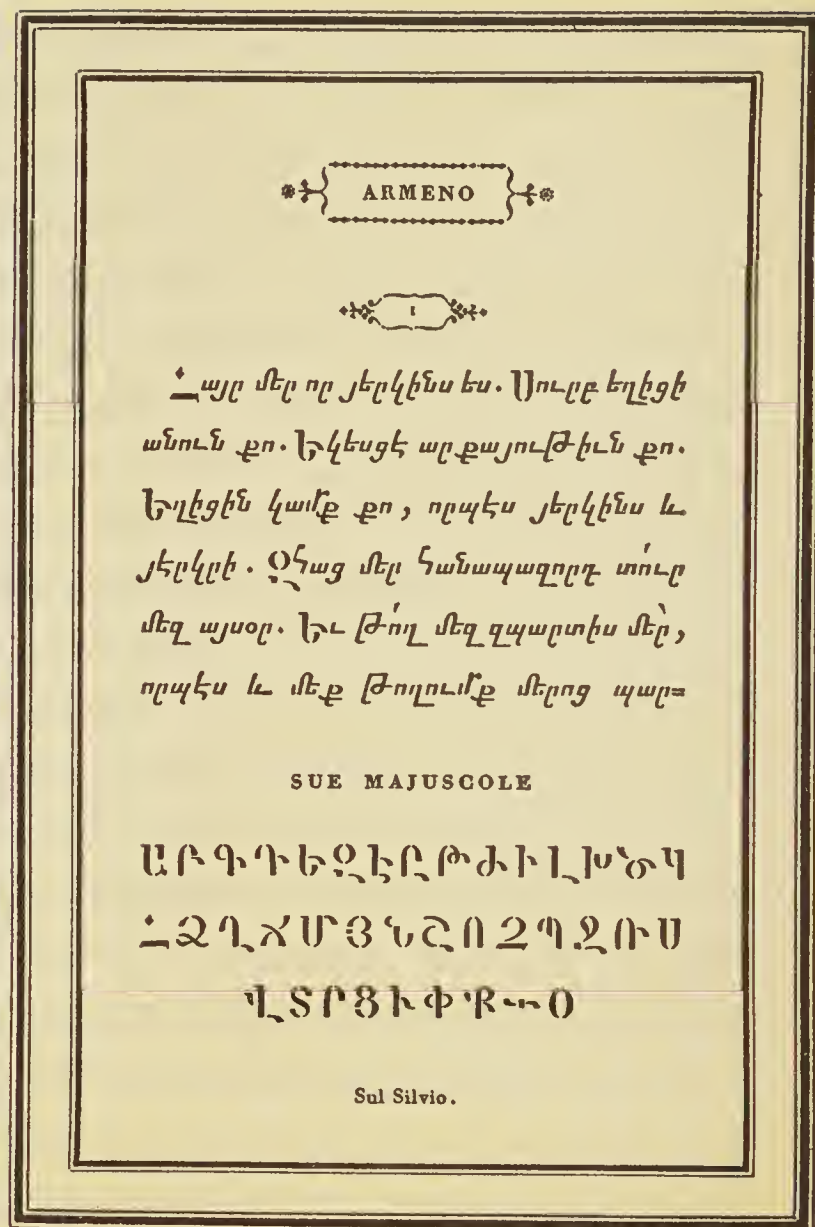 ARMENO
I
Հայր մեր որ յերկինս ես. Սուրբ եղիցի
անուն քո. Եկեսցէ արքայութիւն քո.
Եղիցին կամք քո, որպէս յերկինս և
յերկրի. Զհաց մեր հանապազորդ տո՛ւր
մեզ այսօր. Եւ թո՛ղ մեզ զպարտիս մե՛ր,
որպէս և մեք թողումք մերոց պար֊
SUE MAJUSCOLE
Ա Բ Գ Դ Ե Զ Է Ը Թ Ժ Ի Լ Խ Ծ Կ
Հ Ձ Ղ Ճ Մ Յ Ն Շ Ո Չ Պ Ջ Ռ Ս
Վ Տ Ր Ց Ւ Փ Ք և Օ
Sul Silvio.